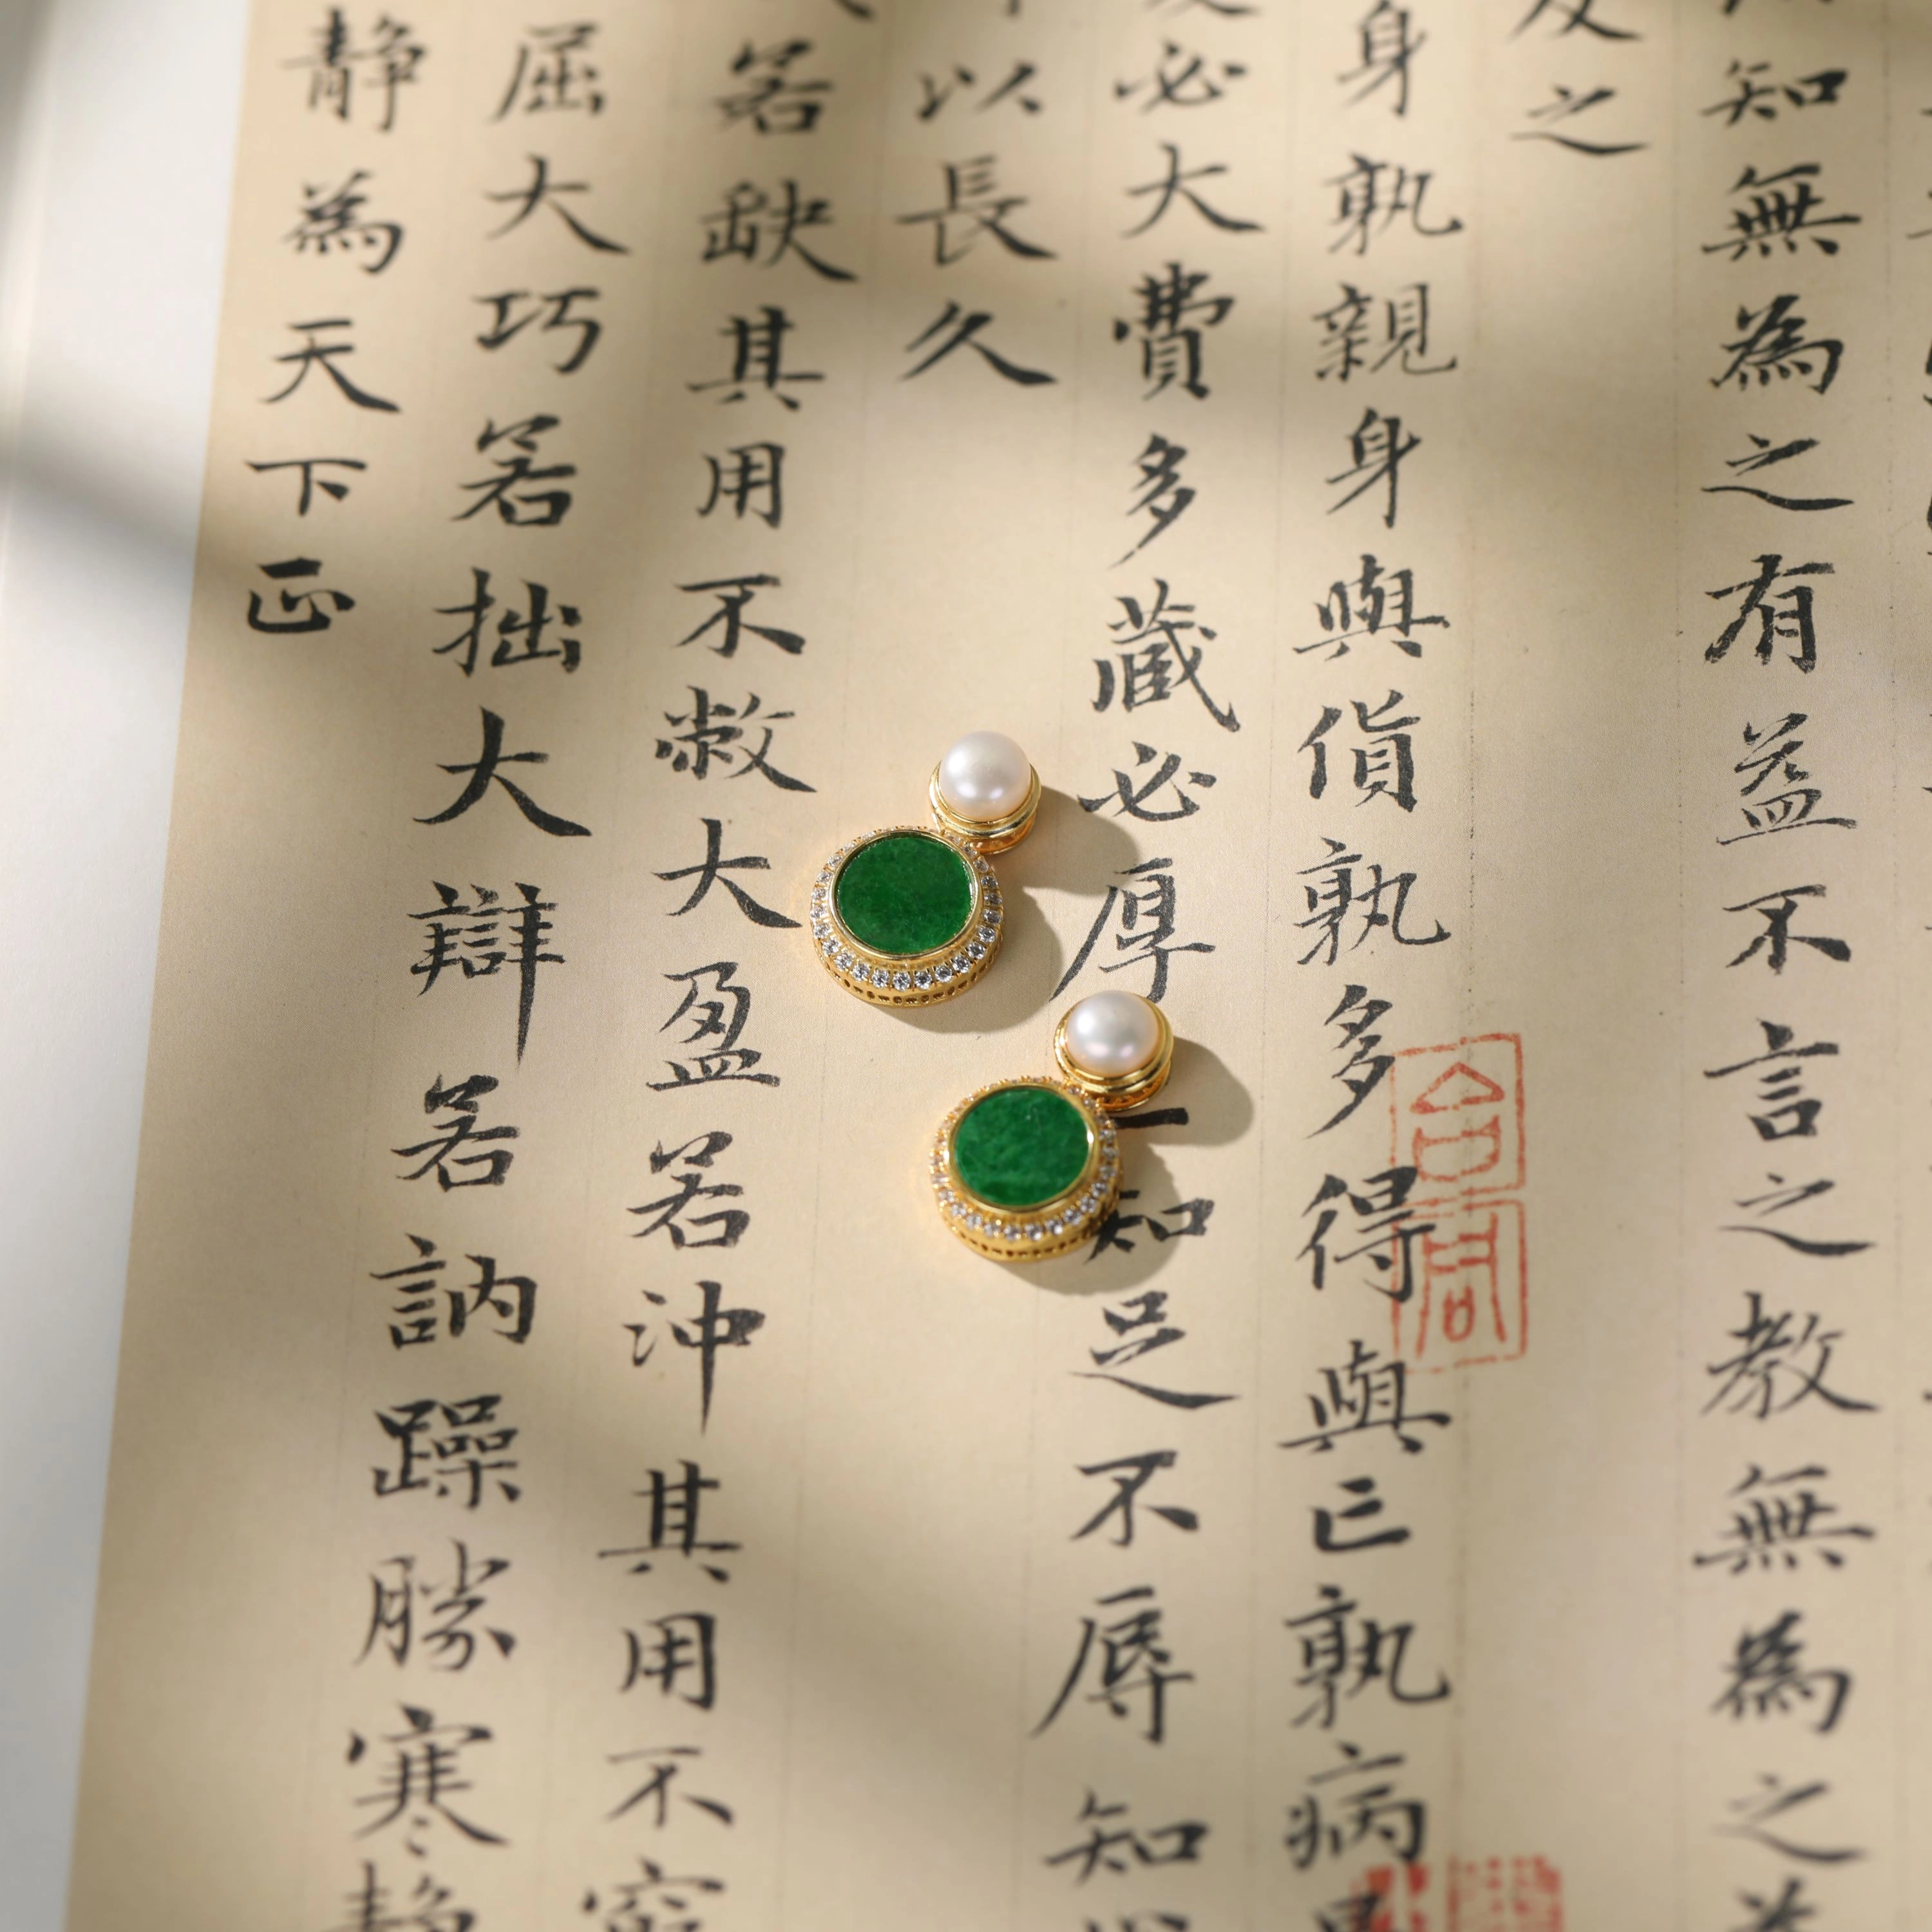 知無為之有益不言之教無為之
及之
身孰親身與貨孰多得與亡孰病
必大費多藏必厚知足不辱知
以長久
若缺其用不敝大盈若沖其用不窮
屈大巧若拙大辯若訥躁勝寒靜
靜為天下正